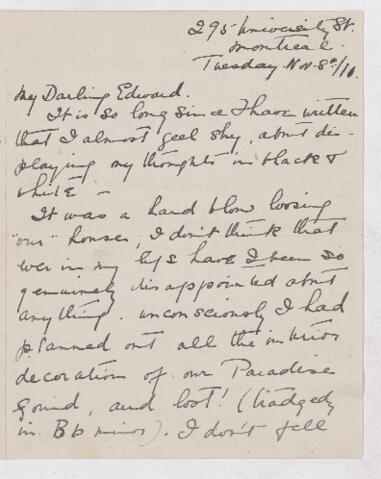 295 University St.
Montreal.
Tuesday Nov. 8th/10.
My Darling Edward.
It is so long since I have written
that I almost feel shy, about dis-
playing my thoughts in black &
white —
It was a hard blow loosing
"our" house, I don't think that
ever in my life have I been so
genuinely disappointed about
anything. unconsciously I had
planned out all the interior
decoration of our Paradise
found, and lost! (tradgedy
in Bb minor). I don't fell